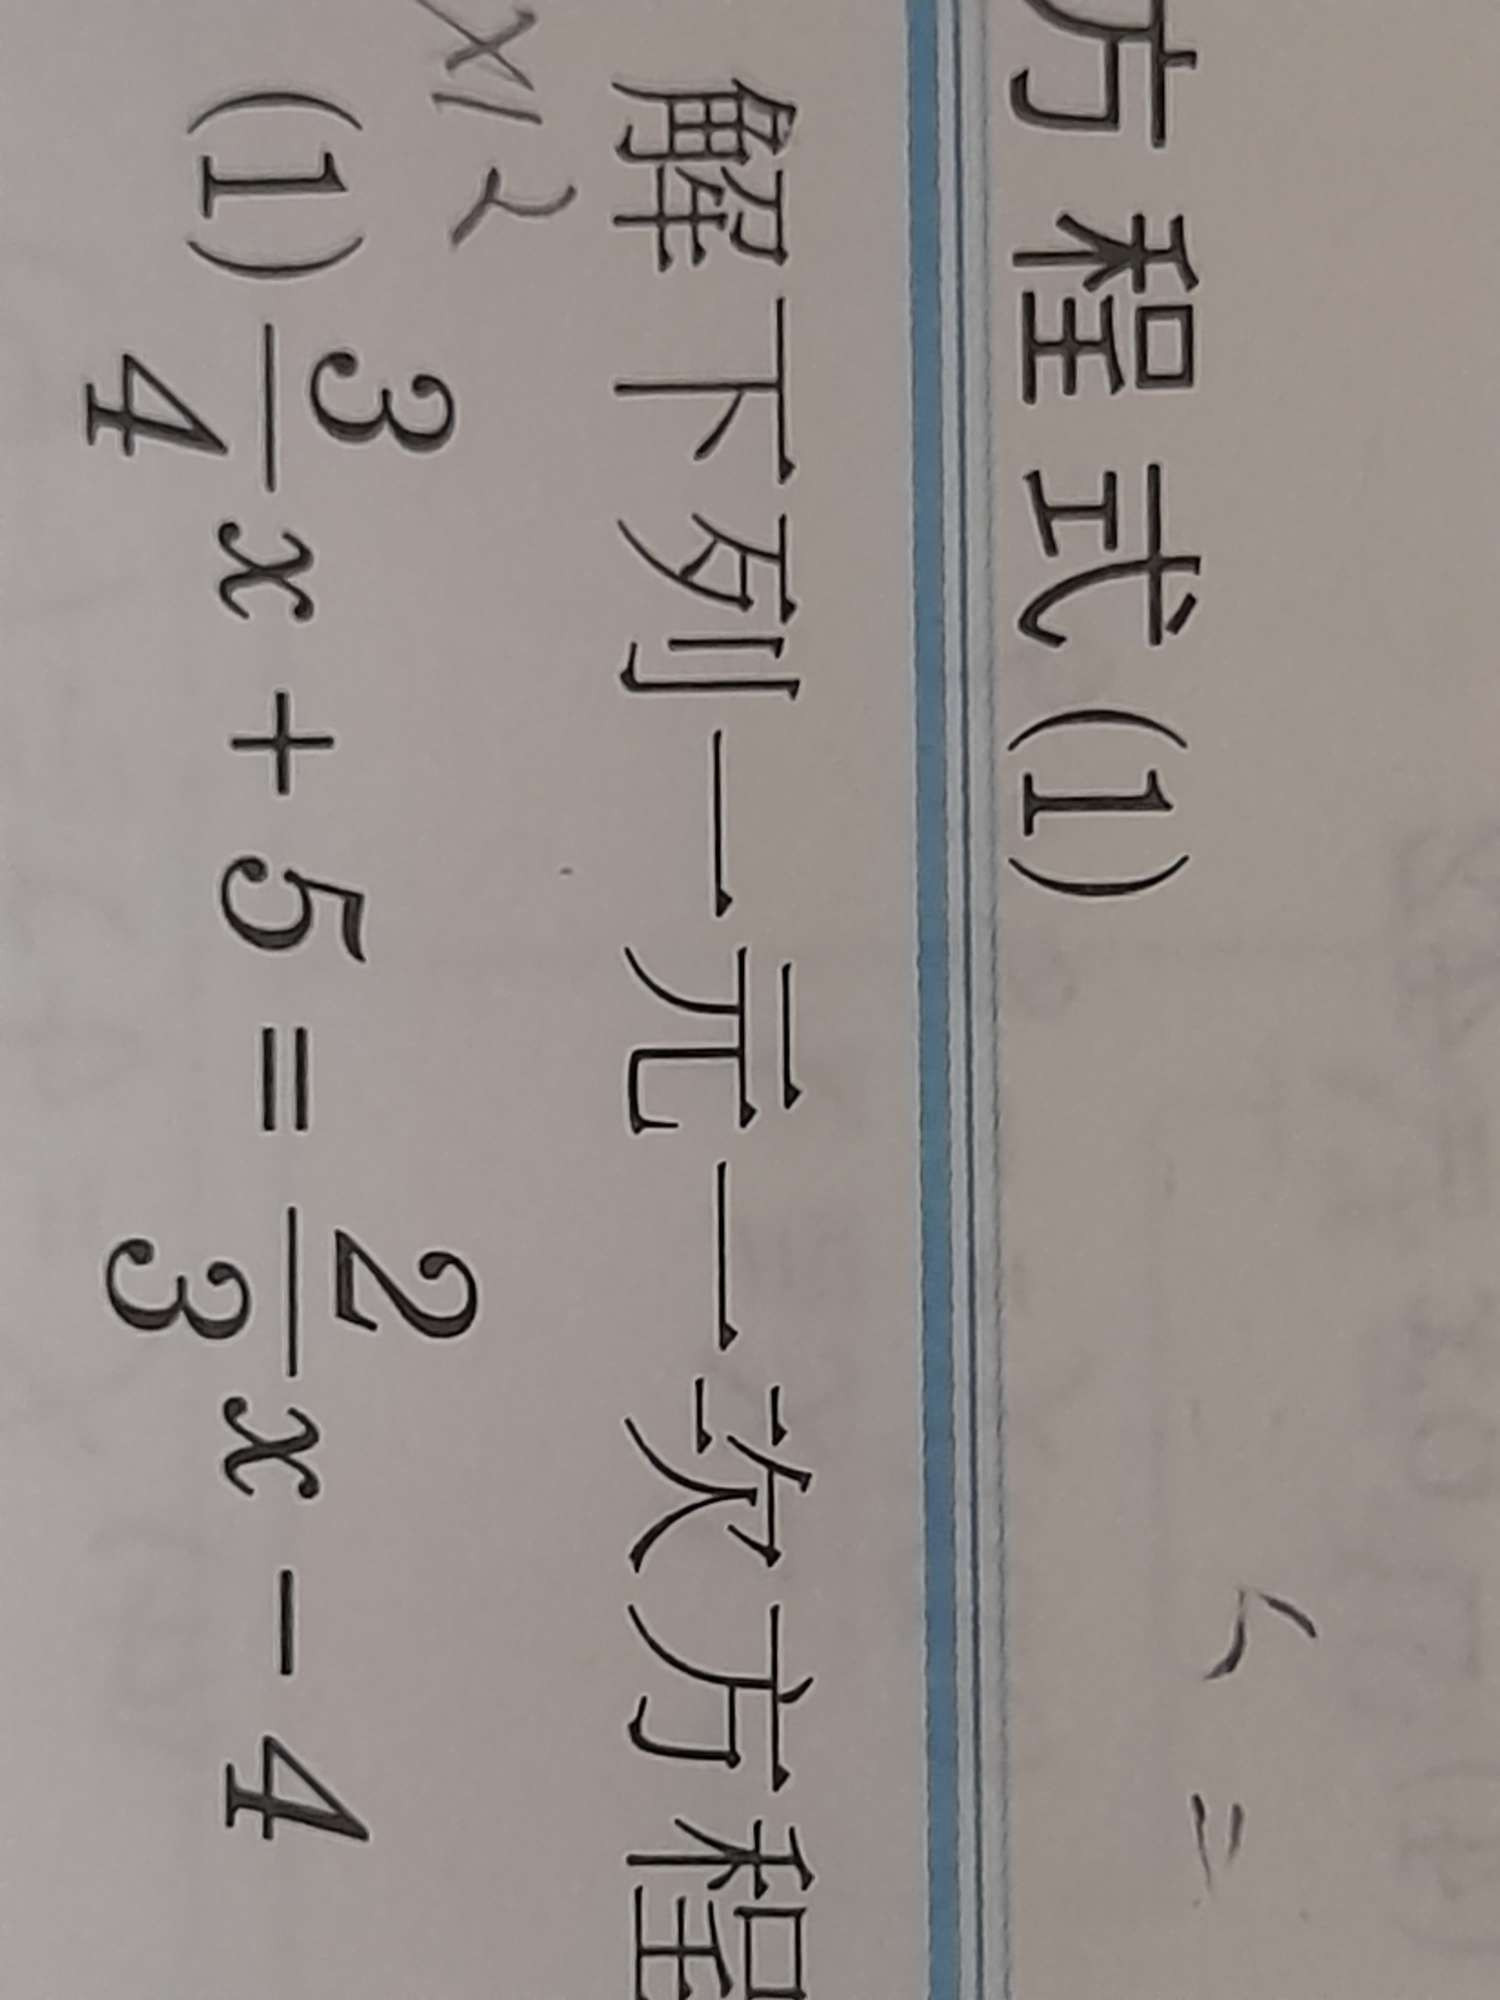 方程式(1)
解下列一元一次方程
×12
(1) 3/4 x + 5 = 2/3 x − 4